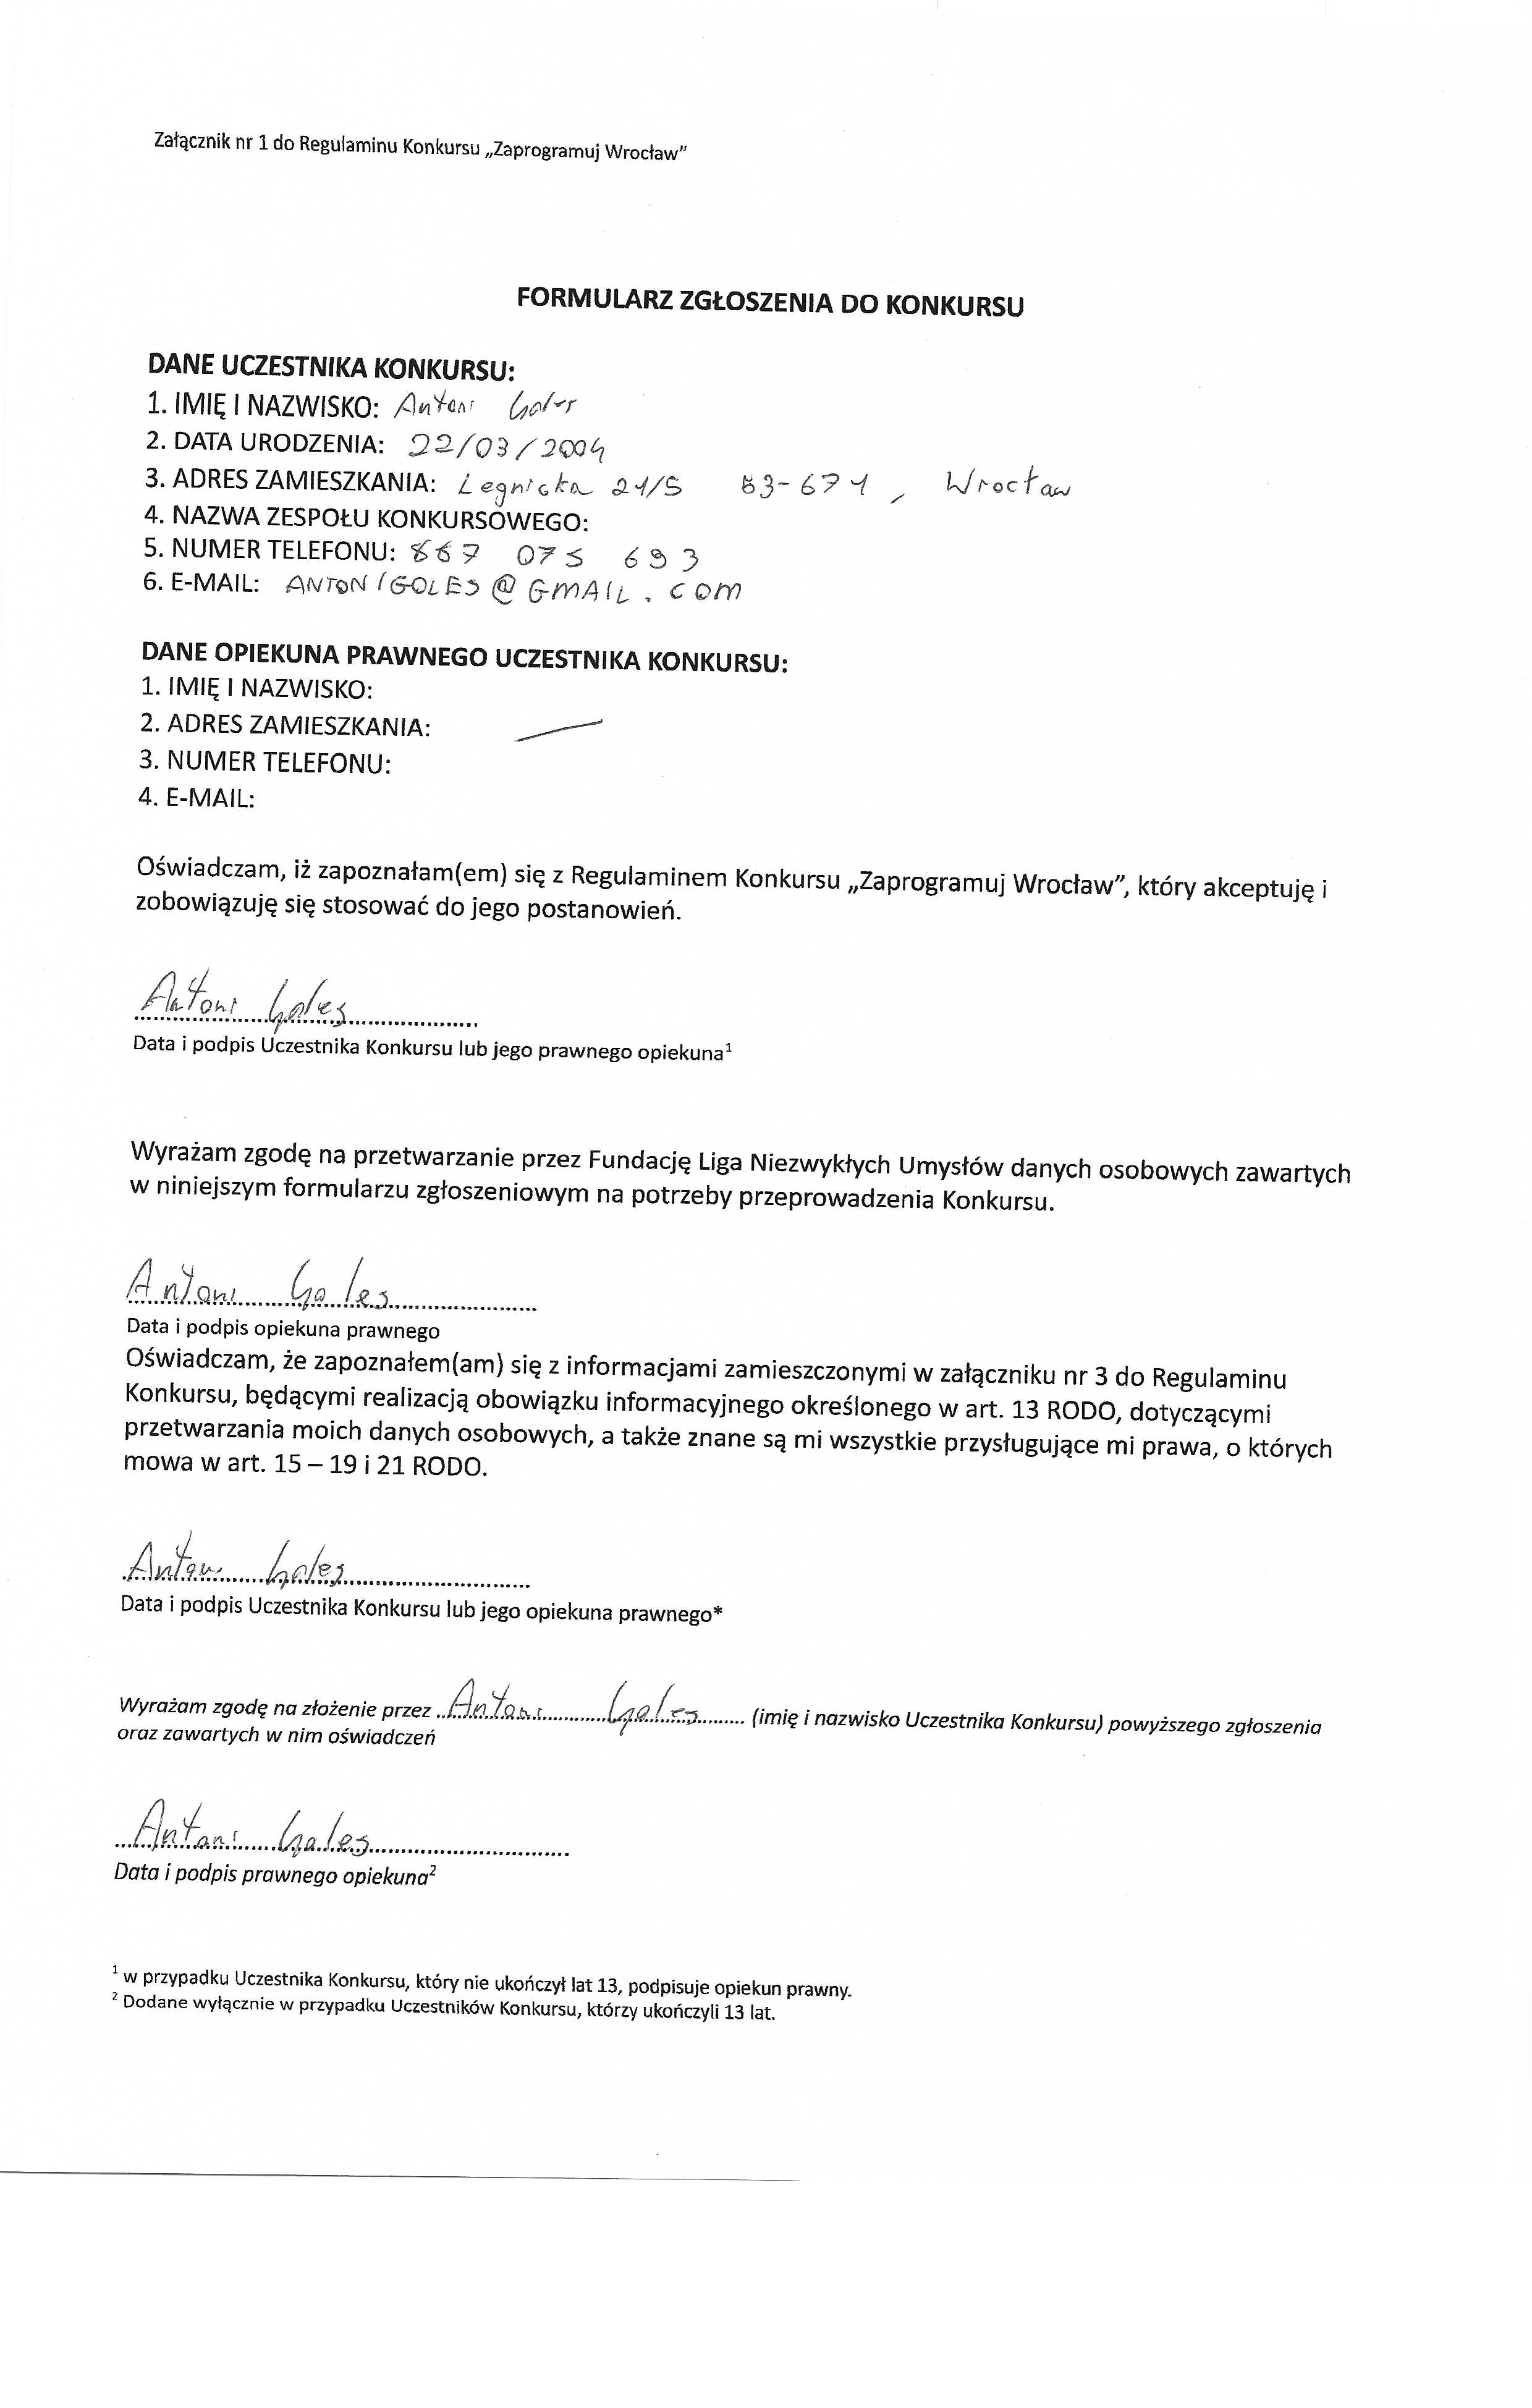 Załącznik nr 1 do Regulaminu Konkursu „Zaprogramuj Wrocław”
FORMULARZ ZGŁOSZENIA DO KONKURSU
DANE UCZESTNIKA KONKURSU:
1. IMIĘ I NAZWISKO: Antoni Goles
2. DATA URODZENIA: 22/03/2004
3. ADRES ZAMIESZKANIA: Legnicka 21/5 53-671, Wrocław
4. NAZWA ZESPOŁU KONKURSOWEGO:
5. NUMER TELEFONU: 667 075 693
6. E-MAIL: ANTONIGOLES@GMAIL.COM
DANE OPIEKUNA PRAWNEGO UCZESTNIKA KONKURSU:
1. IMIĘ I NAZWISKO:
2. ADRES ZAMIESZKANIA: —
3. NUMER TELEFONU:
4. E-MAIL:
Oświadczam, iż zapoznałam(em) się z Regulaminem Konkursu „Zaprogramuj Wrocław”, który akceptuję i
zobowiązuję się stosować do jego postanowień.
Antoni Goles
Data i podpis Uczestnika Konkursu lub jego prawnego opiekuna¹
Wyrażam zgodę na przetwarzanie przez Fundację Liga Niezwykłych Umysłów danych osobowych zawartych
w niniejszym formularzu zgłoszeniowym na potrzeby przeprowadzenia Konkursu.
Antoni Goles
Data i podpis opiekuna prawnego
Oświadczam, że zapoznałem(am) się z informacjami zamieszczonymi w załączniku nr 3 do Regulaminu
Konkursu, będącymi realizacją obowiązku informacyjnego określonego w art. 13 RODO, dotyczącymi
przetwarzania moich danych osobowych, a także znane są mi wszystkie przysługujące mi prawa, o których
mowa w art. 15 – 19 i 21 RODO.
Antoni Goles
Data i podpis Uczestnika Konkursu lub jego opiekuna prawnego*
Wyrażam zgodę na złożenie przez Antoni Goles (imię i nazwisko Uczestnika Konkursu) powyższego zgłoszenia
oraz zawartych w nim oświadczeń
Antoni Goles
Data i podpis prawnego opiekuna²
¹ w przypadku Uczestnika Konkursu, który nie ukończył lat 13, podpisuje opiekun prawny.
² Dodane wyłącznie w przypadku Uczestników Konkursu, którzy ukończyli 13 lat.